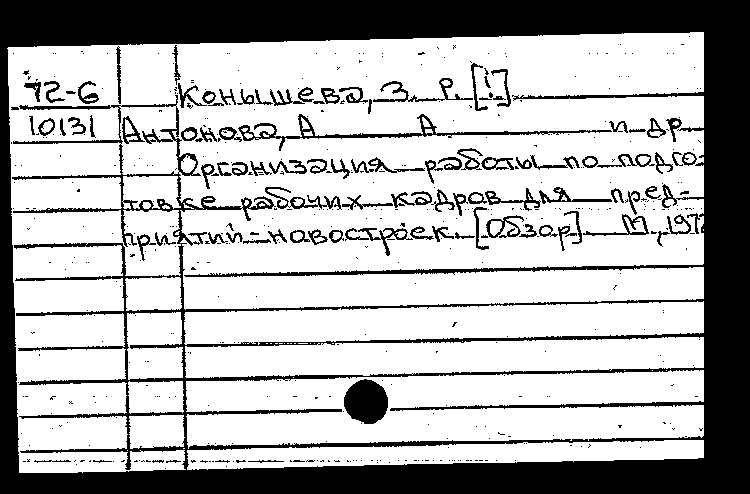 72-6 Конышева, З. Р. [!]
10131 Антонова, А А и др
Организация работы по подго-
товке рабочих кадров для пред-
приятий-новостроек. [Обзор]. М., 1972